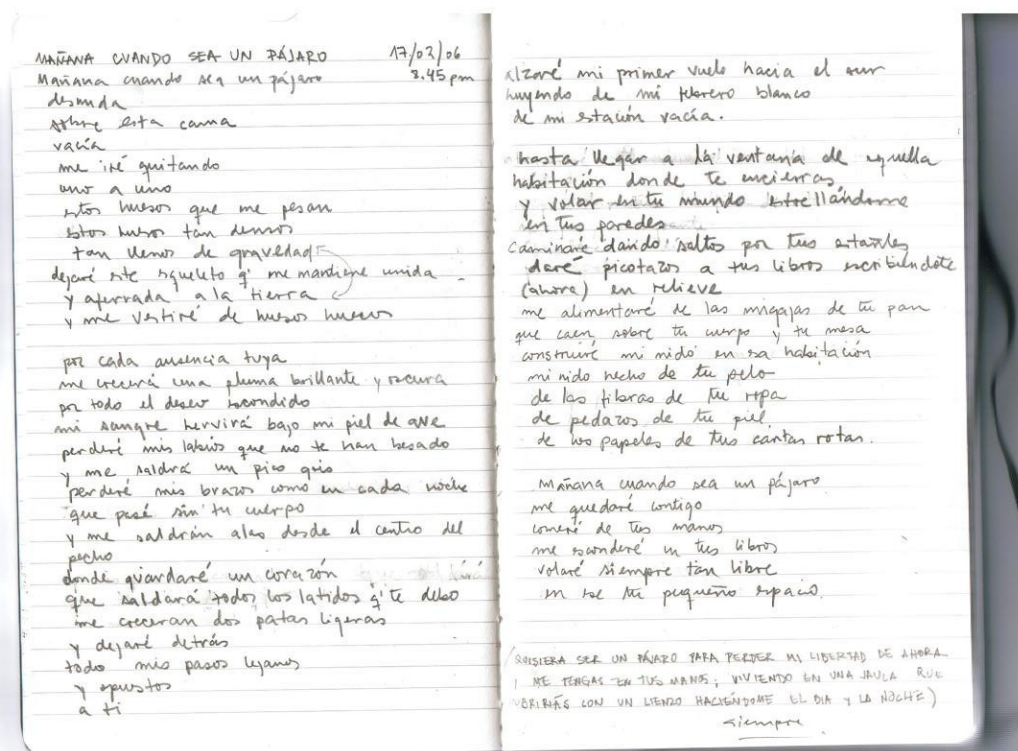 MAÑANA CUANDO SEA UN PÁJARO 17/02/06
Mañana cuando sea un pájaro 8.45 pm
desnuda
sobre esta cama
vacía
me iré quitando
uno a uno
estos huesos que me pesan
estos huesos tan densos
tan llenos de gravedad
dejaré este esqueleto q' me mantiene unida
y aferrada a la tierra
y me vestiré de huesos huecos
por cada ausencia tuya
me crecerá una pluma brillante y oscura
por todo el deseo escondido
mi sangre hervirá bajo mi piel de ave
perderé mis labios que no te han besado
y me saldrá un pico gris
perderé mis brazos como en cada noche
que pasé sin tu cuerpo
y me saldrán alas desde el centro del
pecho
donde guardaré un corazón
que saldará todos los latidos q' te debo
me creceran dos patas ligeras
y dejaré detrás
todo mis pasos lejanos
y opuestos
a ti
alzaré mi primer vuelo hacia el sur
huyendo de mi febrero blanco
de mi estación vacía.
hasta llegar a la ventana de aquella
habitación donde te encierras
y volar en tu mundo estrellándome
en tus paredes
caminaré dando saltos por tus estantes
daré picotazos a tus libros escribiéndote
(ahora) en relieve
me alimentaré de las migajas de tu pan
que caen sobre tu cuerpo y tu mesa
construiré mi nido en esa habitación
mi nido hecho de tu pelo
de las fibras de tu ropa
de pedazos de tu piel
de los papeles de tus cartas rotas.
mañana cuando sea un pájaro
me quedaré contigo
comeré de tus manos
me esconderé en tus libros
volaré siempre tan libre
en ese tu pequeño espacio.
(QUISIERA SER UN PÁJARO PARA PERDER MI LIBERTAD DE AHORA
ME TENGAS EN TUS MANOS; VIVIENDO EN UNA JAULA QUE
CUBRIRÍAS CON UN LIENZO HACIÉNDOME EL DIA Y LA NOCHE)
siempre